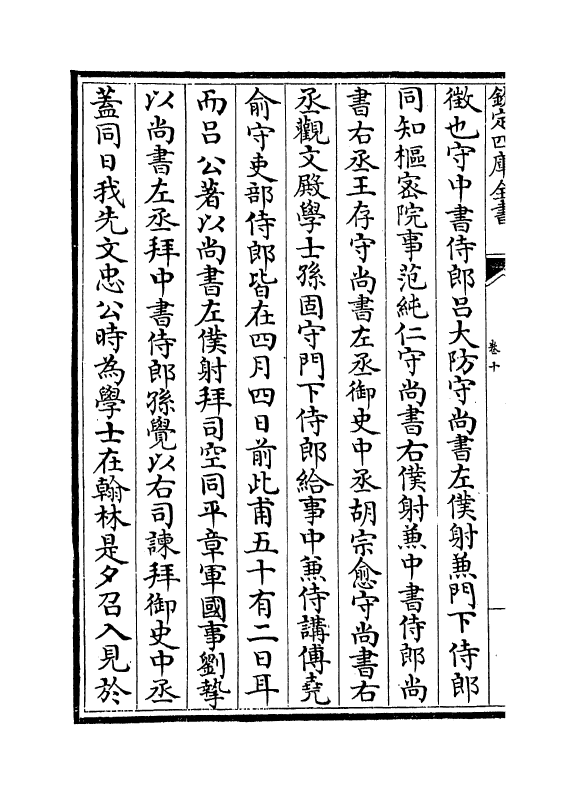 欽定四庫全書
卷十
徵也守中書侍郎吕大防守尚書左僕射兼門下侍郎
同知樞密院事范純仁守尚書右僕射兼中書侍郎尚
書右丞王存守尚書左丞御史中丞胡宗愈守尚書右
丞觀文殿學士孫固守門下侍郎給事中兼侍講傅堯
俞守吏部侍郎皆在四月四日前此甫五十有二日耳
而吕公著以尚書左僕射拜司空同平章軍國事劉摯
以尚書左丞拜中書侍郎孫覺以右司諫拜御史中丞
蓋同日我先文忠公時為學士在翰林是夕召入見於